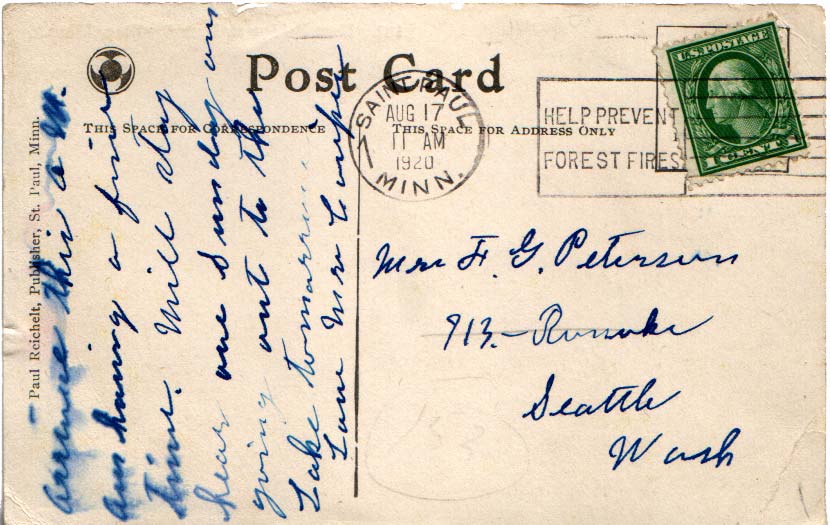 Post Card
THIS SPACE FOR CORRESPONDENCE
THIS SPACE FOR ADDRESS ONLY
SAINT PAUL
AUG 17
11 AM
1920
MINN.
HELP PREVENT
FOREST FIRES
U.S. POSTAGE
1 CENT 1
Paul Reichelt, Publisher, St. Paul, Minn.
this a m.
am having a fine
time. Will stay
hear one Sunday am
going out to the
Lake tomarrow
Love Mrs Couper
Mrs F. G. Peterson
913.- Roanoke
Seattle
Wash